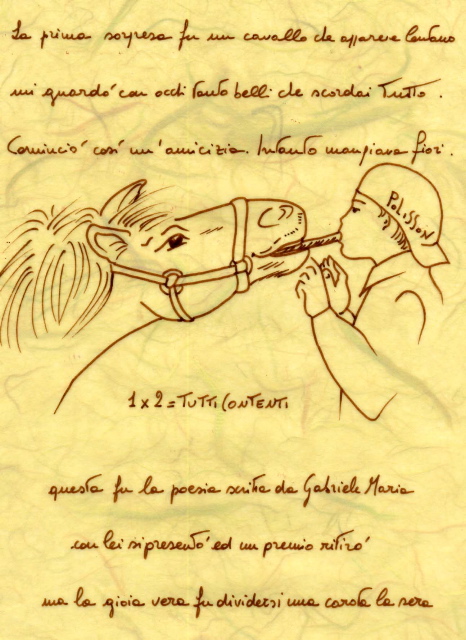 La prima sorpresa fu un cavallo che apparve lontano
mi guardò con occhi tanto belli che scordai Tutto.
Cominciò così un'amicizia. Intanto mangiava fiori.
POLISSON
1x2=TUTTI CONTENTI
questa fu la poesia scritta da Gabriele Maria
con lei si presentò ed un premio ritirò
ma la gioia vera fu dividersi una carota la sera